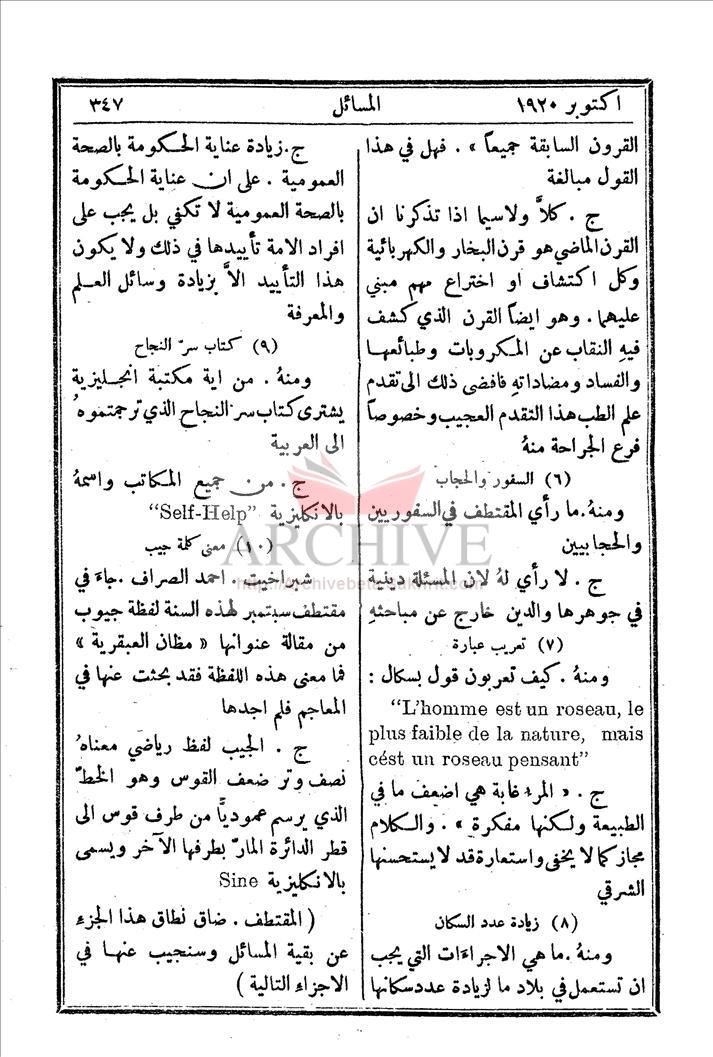 اكتوبر ١٩٢٠
المسائل
٣٤٧
القرون السابقة جميعاً» . فهل في هذا
القول مبالغة
ج . كلاَّ ولاسيما اذا تذكرنا ان
القرن الماضي هو قرن البخار والكهربائية
وكل اكتشاف او اختراع مهم مبني
عليهما . وهو ايضاً القرن الذي كشف
فيهِ النقاب عن المكروبات وطبائعها
والفساد ومضاداتهِ فافضى ذلك الى تقدم
علم الطب هذا التقدم العجيب وخصوصاً
فرع الجراحة منهُ
(٦) السفور والحجاب
ومنهُ . ما رأي المقتطف في السفوريين
والحجابيين
ج . لا رأي لهُ لان المسئلة دينية
في جوهرها والدين خارج عن مباحثهِ
(٧) تعريب عبارة
ومنهُ . كيف تعربون قول بسكال :
"L'homme est un roseau, le
plus faible de la nature, mais
cést un roseau pensant"
ج . « المرء غابة هي اضعف ما في
الطبيعة ولكنها مفكرة » . والكلام
مجاز كما لا يخفى واستعارة قد لا يستحسنها
الشرقي
(٨) زيادة عدد السكان
ومنهُ . ما هي الاجراءات التي يجب
ان تستعمل في بلاد ما لزيادة عدد سكانها
ج . زيادة عناية الحكومة بالصحة
العمومية . على ان عناية الحكومة
بالصحة العمومية لا تكفي بل يجب على
افراد الامة تأييدها في ذلك ولا يكون
هذا التأييد الاَّ بزيادة وسائل العلم
والمعرفة
(٩) كتاب سرّ النجاح
ومنهُ . من اية مكتبة انجليزية
يشترى كتاب سر النجاح الذي ترجمتموهُ
الى العربية
ج . من جميع المكاتب واسمهُ
بالانكليزية "Self-Help"
(١٠) معنى كلمة جيب
شبراخيت . احمد الصراف . جاءَ في
مقتطف سبتمبر لهذه السنة لفظة جيوب
من مقالة عنوانها « مظان العبقرية »
فما معنى هذه اللفظة فقد بحثت عنها في
المعاجم فلم اجدها
ج . الجيب لفظ رياضي معناهُ
نصف وتر ضعف القوس وهو الخطّ
الذي يرسم عموديًّا من طرف قوس الى
قطر الدائرة المارّ بطرفها الآخر ويسمى
بالانكليزية Sine
( المقتطف . ضاق نطاق هذا الجزء
عن بقية المسائل وسنجيب عنها في
الاجزاء التالية )
ARCHIVE